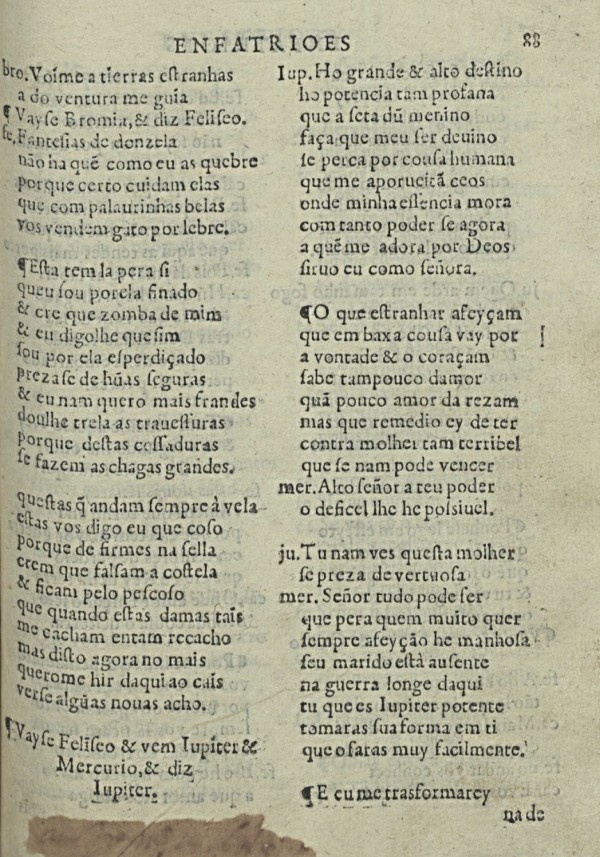 ENFATRIOES
88
bro. Voime a tierras estranhas
a do ventura me guia
¶Vayse Bromia, & diz Feliseo.
fe. Fantesias de donzela
não ha quẽ como eu as quebre
porque certo cuidam elas
que com palaurinhas belas
vos vendem gato por lebre.
¶Esta tem la pera si
queu sou porela finado
& cre que zomba de mim
& eu digolhe que sim
sou por ela esperdiçado
prezase de hũas seguras
& eu nam quero mais frandes
doulhe trela as trauessuras
porque destas cossaduras
se fazem as chagas grandes.
questas q̃ andam sempre à vela
estas vos digo eu que coso
porque de firmes na sella
crem que falsam a costela
& ficam pelo pescoso
que quando estas damas tais
me cácham entam recacho
mas disto agora no mais
querome hir daqui ao cais
verse algũas nouas acho.
¶Vayse Feliseo & vem Iupiter &
Mercurio, & diz
Iupiter.
Iup. Ho grande & alto destino
ho potencia tam profana
que a seta dũ menino
faça que meu ser deuino
se perca por cousa humana
que me aporueitã ceos
onde minha essencia mora
com tanto poder se agora
a quẽ me adora por Deos
siruo eu como señora.
¶O que estranhar afeyçam
que em baxa cousa vay por
a vontade & o coraçam
sabe tampouco damor
quã pouco amor da rezam
mas que remedio ey de ter
contra molher tam terribel
que se nam pode vencer
mer. Alto señor a teu poder
o deficel lhe he possiuel.
ju. Tu nam ves questa molher
se preza de vertuosa
mer. Señor tudo pode ser
que pera quem muito quer
sempre afeyção he manhosa
seu marido està ausente
na guerra longe daqui
tu que es Iupiter potente
tomaras sua forma em ti
que o faras muy facilmente.
¶E eu me trasformarey
na de